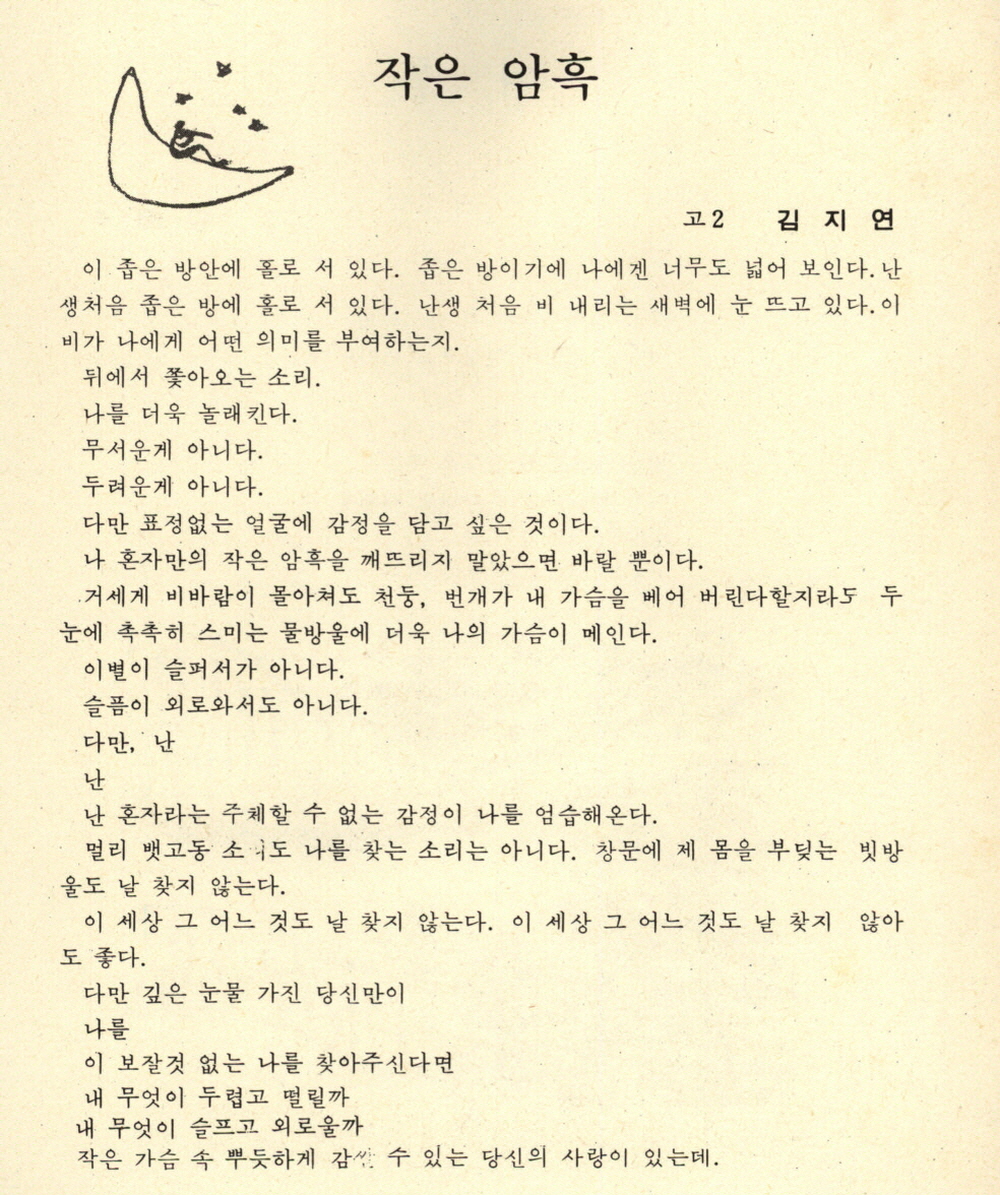 작은 암흑
고2 김 지 연
이 좁은 방안에 홀로 서 있다. 좁은 방이기에 나에겐 너무도 넓어 보인다. 난
생처음 좁은 방에 홀로 서 있다. 난생 처음 비 내리는 새벽에 눈 뜨고 있다. 이
비가 나에게 어떤 의미를 부여하는지.
뒤에서 쫓아오는 소리.
나를 더욱 놀래킨다.
무서운게 아니다.
두려운게 아니다.
다만 표정없는 얼굴에 감정을 담고 싶은 것이다.
나 혼자만의 작은 암흑을 깨뜨리지 말았으면 바랄 뿐이다.
거세게 비바람이 몰아쳐도 천둥, 번개가 내 가슴을 베어 버린다할지라도 두
눈에 촉촉히 스미는 물방울에 더욱 나의 가슴이 메인다.
이별이 슬퍼서가 아니다.
슬픔이 외로와서도 아니다.
다만, 난
난
난 혼자라는 주체할 수 없는 감정이 나를 엄습해온다.
멀리 뱃고동 소리도 나를 찾는 소리는 아니다. 창문에 제 몸을 부딪는 빗방
울도 날 찾지 않는다.
이 세상 그 어느 것도 날 찾지 않는다. 이 세상 그 어느 것도 날 찾지 않아
도 좋다.
다만 깊은 눈물 가진 당신만이
나를
이 보잘것 없는 나를 찾아주신다면
내 무엇이 두렵고 떨릴까
내 무엇이 슬프고 외로울까
작은 가슴 속 뿌듯하게 감쌀 수 있는 당신의 사랑이 있는데.